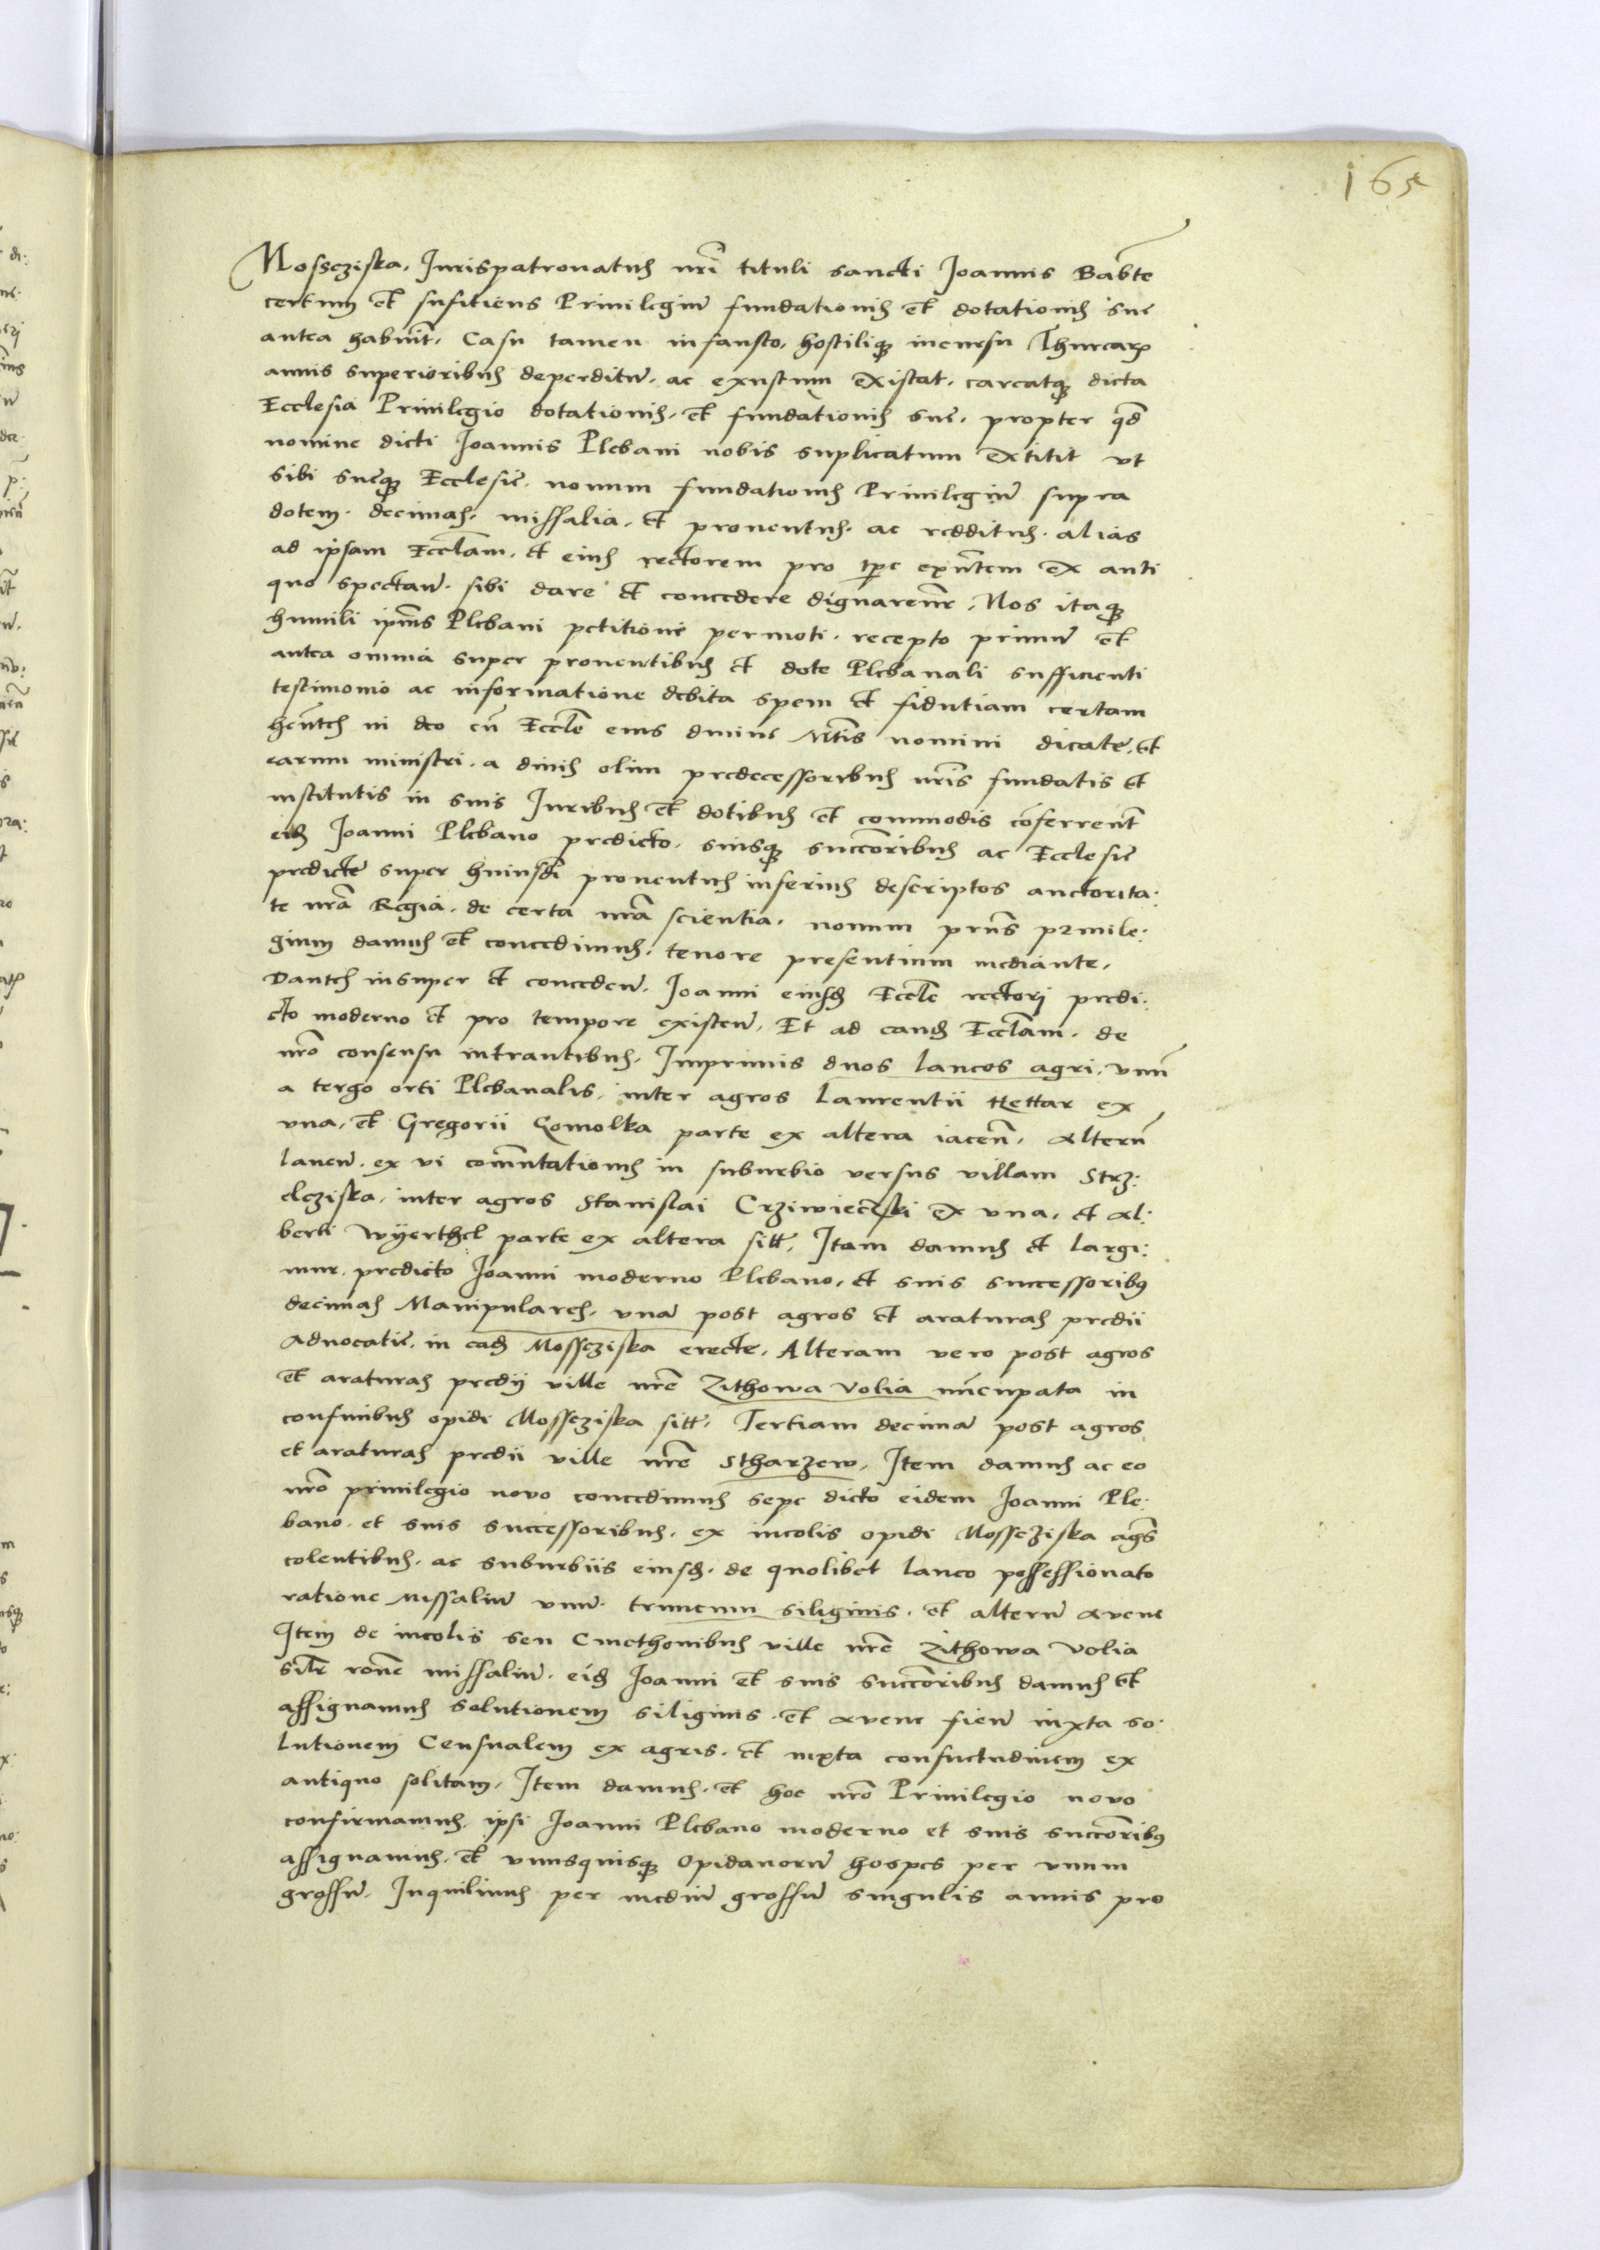 165
Mosscziska, Jurispatronatus nrĩ tituli sancti Joannis Babte
certum et sufitiens Privilegiũ fundationis et dotationis sue
antea habuit, Casu tamen infausto, hostilique incursu Thurcarũ
annis superioribus deperditũ, ac exustum existat, careatque dicta
Ecclesia Privilegio dotationis, et fundationis sue, propter qđ
nomine dicti Joannis Plebani nobis suplicatum extitit ut
sibi sueque Ecclesie, novum fundationis Privilegiũ supra
dotem, decimas, missalia, et proventus, ac redditus, alias
ad ipsam Ecclãm, et eius rectorem pro tp̃e exñtem ex anti
quo spectañ, sibi dare et concedere dignaremr, Nos itaque
humili ipĩus Plebani petitione permoti, recepto primũ et
antea omnia super proventibus et dote Plebanali sufficienti
testimonio ac informatione debita spem et fidutiam certam
hẽntes in deo cũ Eccle eius divine Mtis nomini dicate, et
earum ministri, a divis olim predecessoribus nrĩs fundatis et
institutis in suis Juribus et dotibus et commodis cõferrent
eiđ Joanni Plebano predicto, suisque succõribus ac Ecclesie
predicte super huiusđi proventus inferius descriptos auctorita:
te nrã Regia, de certa nrã scientia, novum prñs privile:
gium damus et concedimus, tenore presentium mediante,
Dantes insuper et concedeñ, Joanni eiusđ Eccle rectori predi:
cto moderno et pro tempore existeñ, Et ad eandem Ecclãm, de
nrõ consensu intrantibus, Imprimis duos laneos agri, unũ
a tergo orti Plebanalis, inter agros Laurentii Rettar ex
una, et Gregorii Gomolka parte ex altera iaceñ, alterũ
laneũ, ex vi com̃utationis in suburbio versus villam Strz:
elcziska, inter agros Stanislai Crziwieczski ex una, et Al:
berti Wyerthel parte ex altera sitt̃, Item damus et largi:
mur, predicto Joanni moderno Plebano, et suis successoribus
decimas Manipulares, unã post agros et araturas predii
Advocatie, in eađ Mosscziska erecte, Alteram vero post agros
et araturas predij ville nrẽ Zithowa Volia nũcupata in
confinibus opidi Mossczziska sitt̃, Tertiam decimã post agros
et araturas predii ville nrẽ Stharzew, Item damus ac eo
nrõ privilegio novo concedimus sepe dicto eidem Joanni Ple:
bano, et suis successoribus, ex incolis opidi Mossczziska agrõs
colentibus, ac suburbiis eiusđ, de quolibet laneo possessionato
ratione missaliũ unũ, truncum siliginis, et alterũ avene
Item de incolis seu Cmethonibus ville nrẽ Zithowa Volia
silr̃ rõne missaliũ, eiđ Joanni et suis succõribus damus et
assignamus solutionem siliginis, et avene fieñ iuxta so:
lutionem Censualem ex agris, et iuxta consuetudinem ex
antiquo solitam, Item damus, et hoc nrõ Privilegio novo
confirmamus, ipsi Joanni Plebano moderno et suis succõribus
assignamus, et unusquisque Opidanorũ hospes per unum
grossũ, Inquilinus per mediũ grossũ singulis annis pro